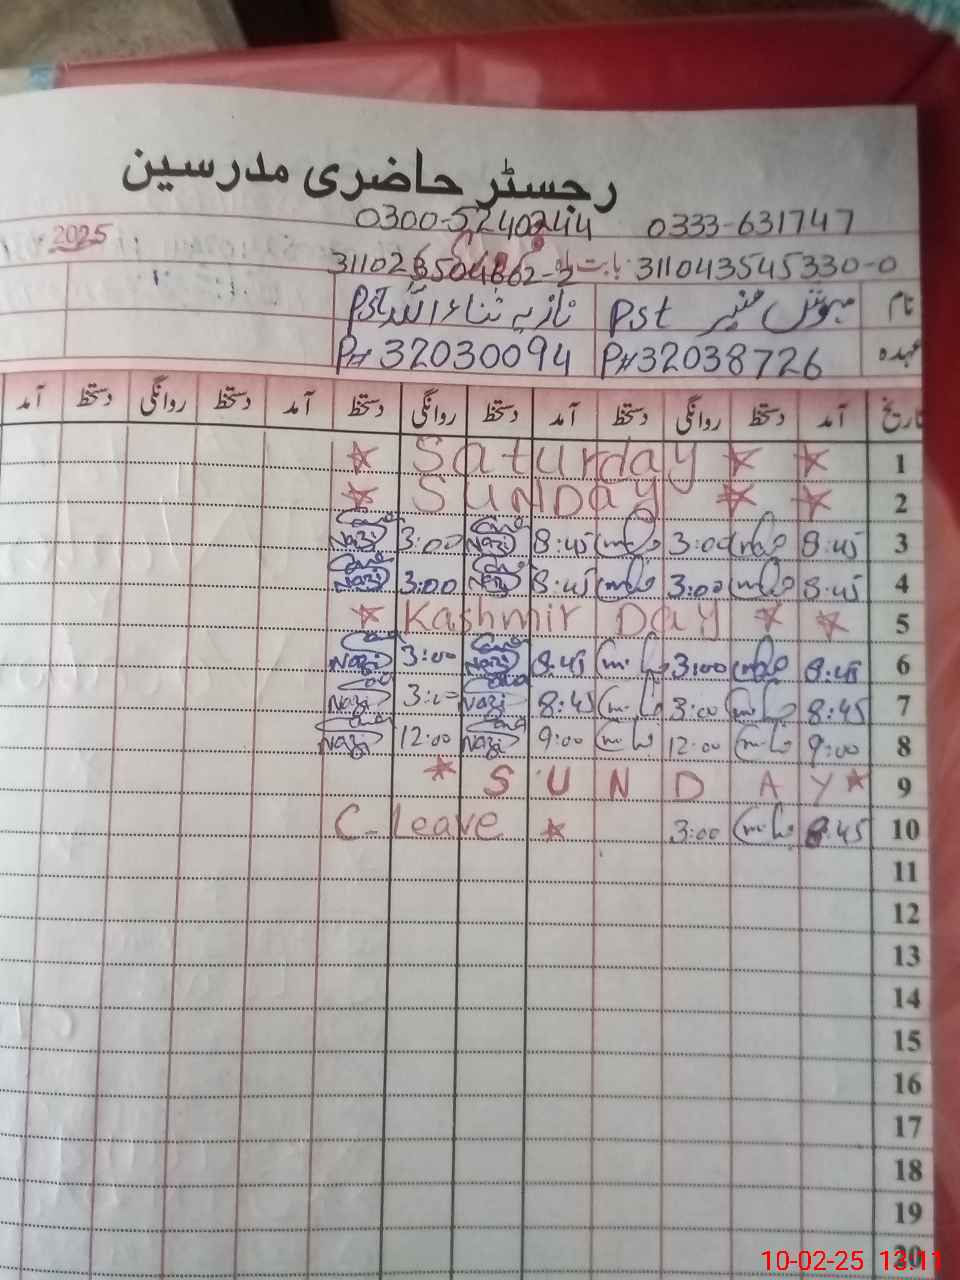 رجسٹر حاضری مدرسین
0333-631747 0300-5240244
2025
بابت ماہ 311043545330-0
نام مہوش منیر Pst نازیہ ثناء اللہ Pst
عہدہ P# 32038726 P# 32030094
تاریخ آمد دستخط روانگی دستخط آمد دستخط روانگی دستخط آمد دستخط روانگی دستخط آمد
1 Saturday
2 SUNDAY
3 8:45 3:00 8:45 Nazi 3:00 Nazi
4 8:45 3:00 8:45 Nazi 3:00 Nazi
5 Kashmir Day
6 8:45 3:00 8:45 Nazi 3:00 Nazi
7 8:45 3:00 8:45 Nazi 3:00 Nazi
8 9:00 12:00 9:00 Nazi 12:00 Nazi
9 SUNDAY
10 8:45 3:00 C-Leave
11
12
13
14
15
16
17
18
19
20
10-02-25 13:11